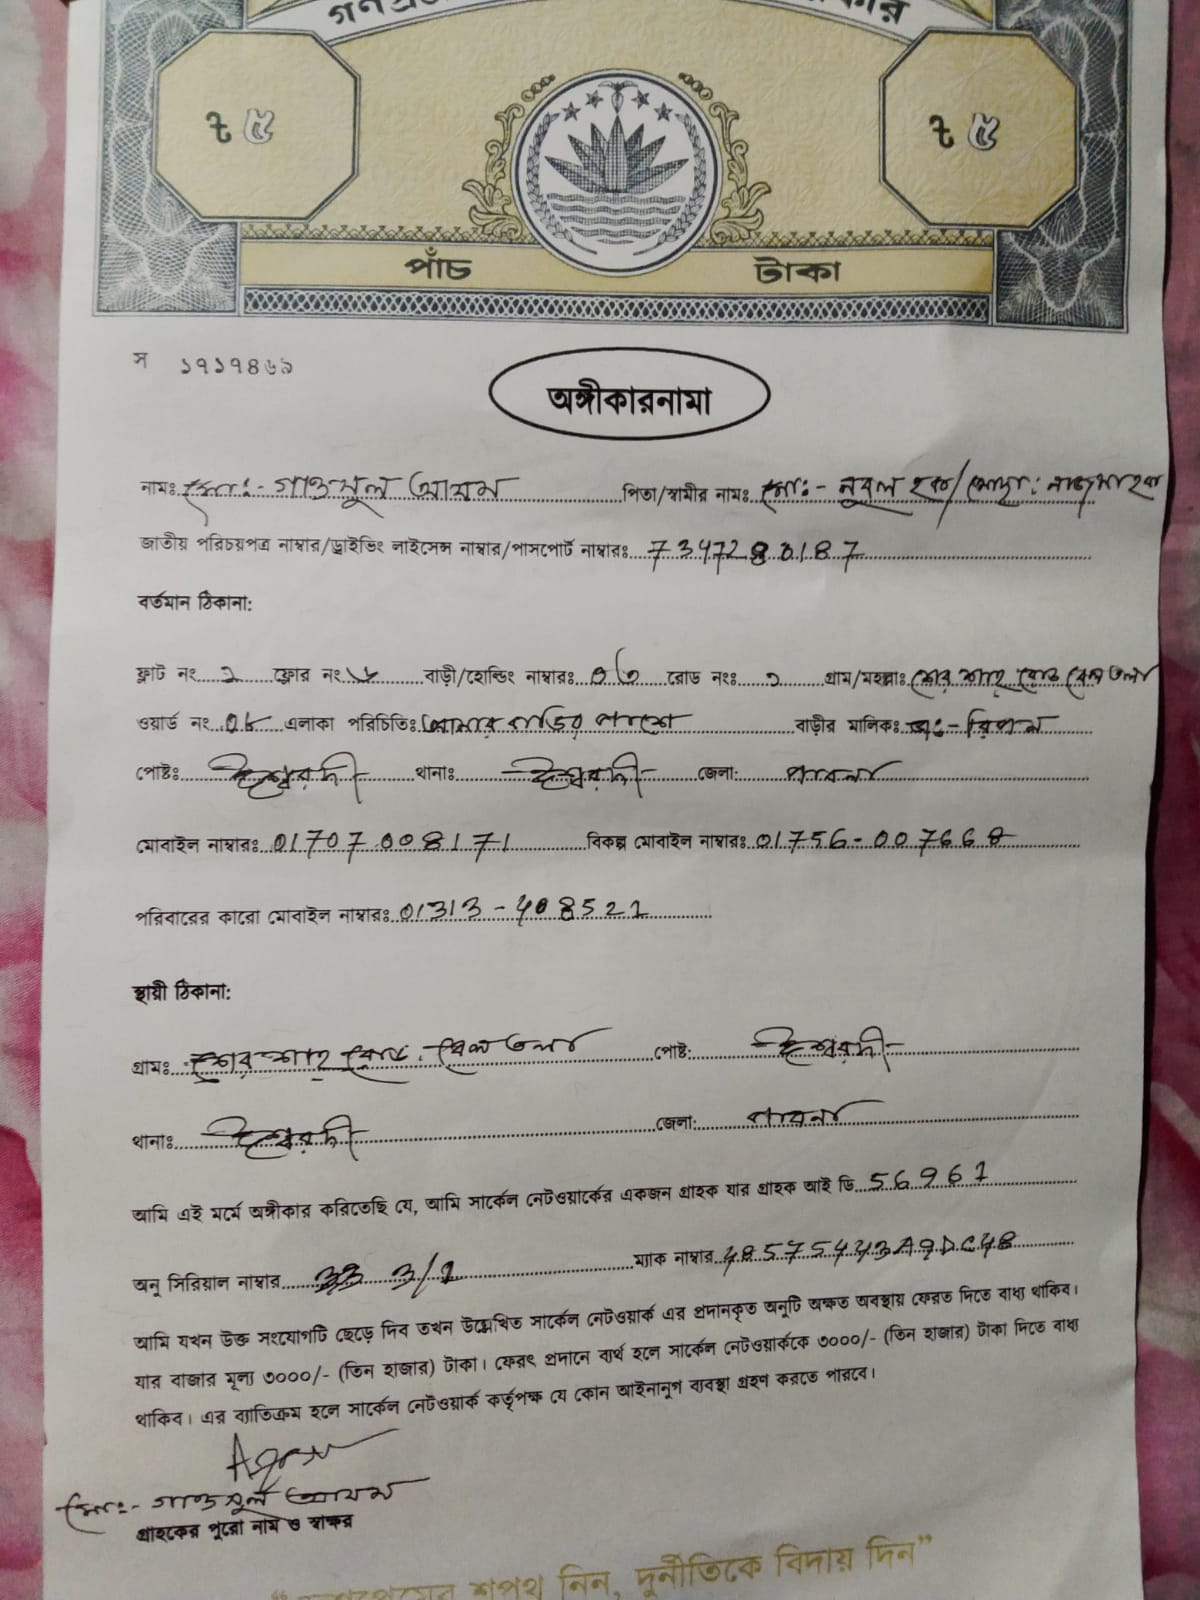 ৳ ৫ ৳ ৫
পাঁচ টাকা
স ১৭১৭৪৬৯
অঙ্গীকারনামা
নামঃ মোঃ- গাজমুল আযম পিতা/স্বামীর নামঃ মোঃ- নুরুল হক/মোছা: নাজমা হক
জাতীয় পরিচয়পত্র নাম্বার/ড্রাইভিং লাইসেন্স নাম্বার/পাসপোর্ট নাম্বারঃ 7347280187
বর্তমান ঠিকানা:
ফ্লাট নং ফ্লোর নং বাড়ী/হোল্ডিং নাম্বারঃ রোড নংঃ গ্রাম/মহল্লাঃ শের শাহ রোড বেল তলা
ওয়ার্ড নং এলাকা পরিচিতিঃ বাড়ির পাশে বাড়ীর মালিকঃ রিপন
পোষ্টঃ ঈশ্বরদী থানাঃ ঈশ্বরদী জেলা: পাবনা
মোবাইল নাম্বারঃ 01707008171 বিকল্প মোবাইল নাম্বারঃ 01756-007668
পরিবারের কারো মোবাইল নাম্বারঃ 01313-408521
স্থায়ী ঠিকানা:
গ্রামঃ শের শাহ রোড বেল তলা পোষ্ট: ঈশ্বরদী
থানাঃ ঈশ্বরদী জেলা: পাবনা
আমি এই মর্মে অঙ্গীকার করিতেছি যে, আমি সার্কেল নেটওয়ার্কের একজন গ্রাহক যার গ্রাহক আই ডি 56961
অনু সিরিয়াল নাম্বার 33 3/1 ম্যাক নাম্বার 48575443A9DC48
আমি যখন উক্ত সংযোগটি ছেড়ে দিব তখন উল্লেখিত সার্কেল নেটওয়ার্ক এর প্রদানকৃত অনুটি অক্ষত অবস্থায় ফেরত দিতে বাধ্য থাকিব।
যার বাজার মূল্য ৩০০০/- (তিন হাজার) টাকা। ফেরৎ প্রদানে ব্যর্থ হলে সার্কেল নেটওয়ার্ককে ৩০০০/- (তিন হাজার) টাকা দিতে বাধ্য
থাকিব। এর ব্যাতিক্রম হলে সার্কেল নেটওয়ার্ক কর্তৃপক্ষ যে কোন আইনানুগ ব্যবস্থা গ্রহণ করতে পারবে।
মোঃ- গাজমুল আযম
গ্রাহকের পুরো নাম ও স্বাক্ষর
শপথ নিন, দুর্নীতিকে বিদায় দিন”